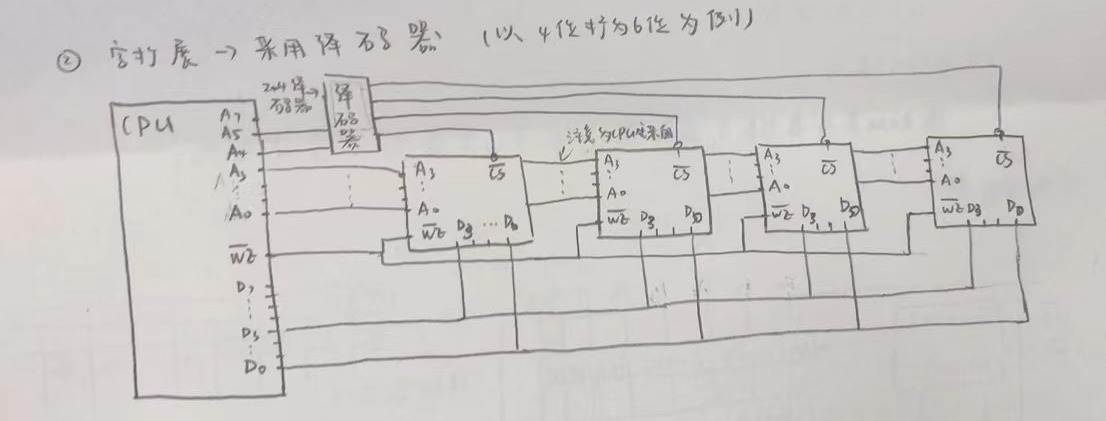 ② 字扩展 → 采用译码器 (以4位扩为6位为例)
2-4译码器→
译码器
CPU
A7
A5
A4
A3
A0
WE
D7
D3
D0
A3
A0
CS
WE D3 ... D0
A3
A0
CS
WE D3 D0
A3
A0
CS
WE D3 D0
A3
A0
CS
WE D3 D0